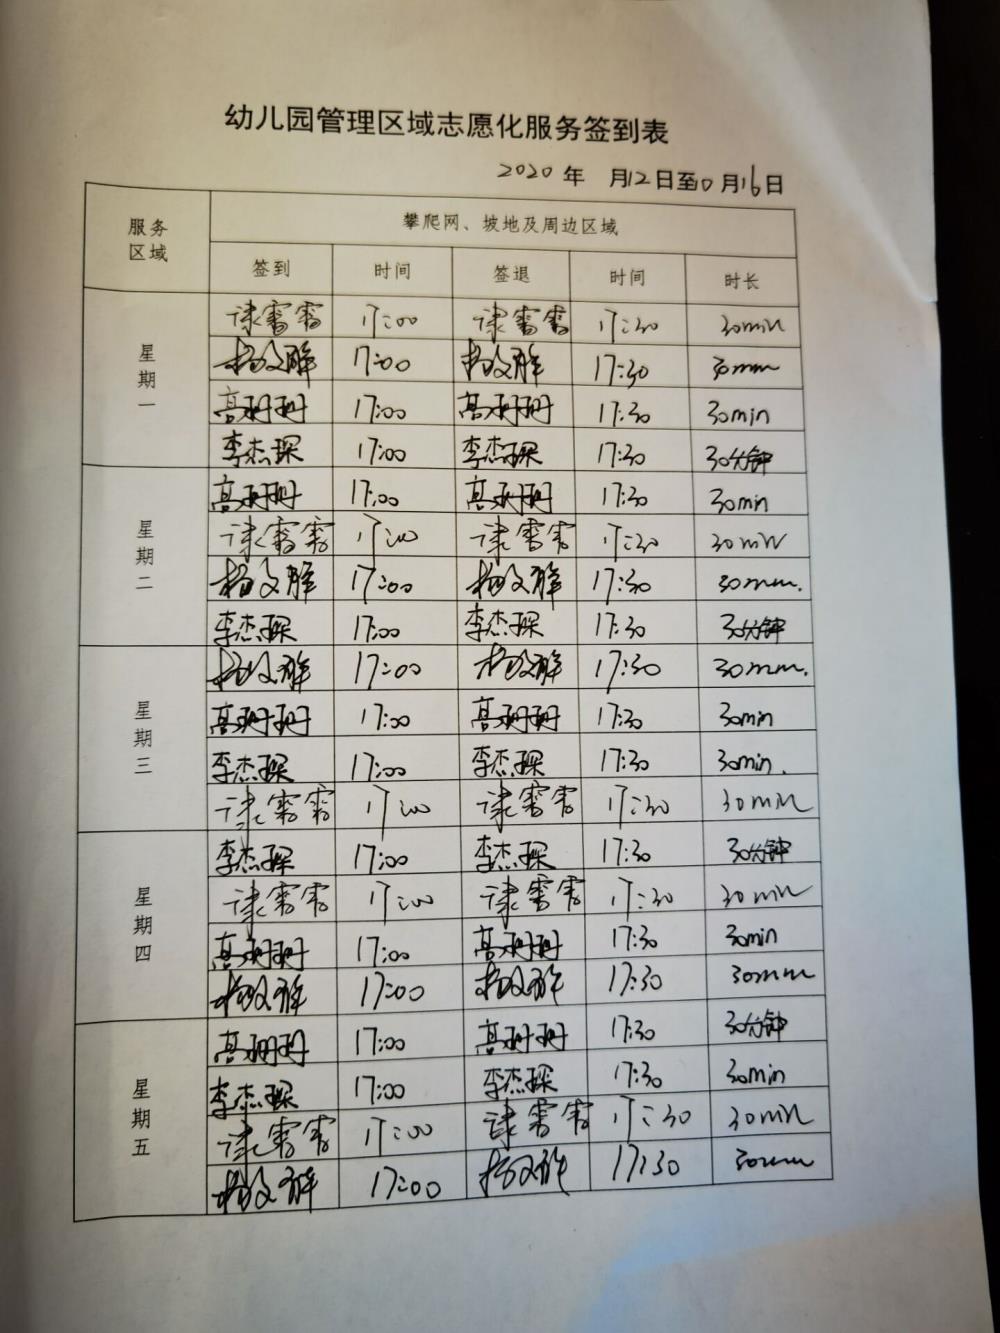 幼儿园管理区域志愿化服务签到表
2020年 月12日至10月16日
服务区域 攀爬网、坡地及周边区域
签到 时间 签退 时间 时长
星期一
17:00 17:30 30min
杨文 17:00 杨文 17:30 30min
高珊珊 17:00 高珊珊 17:30 30min
李杰琛 17:00 李杰琛 17:30 30分钟
星期二
高珊珊 17:00 高珊珊 17:30 30min
17:00 17:30 30min
杨文 17:00 杨文 17:30 30min.
李杰琛 17:00 李杰琛 17:30 30分钟
星期三
杨文 17:00 杨文 17:30 30min.
高珊珊 17:00 高珊珊 17:30 30min
李杰琛 17:00 李杰琛 17:30 30min.
17:00 17:30 30min
星期四
李杰琛 17:00 李杰琛 17:30 30分钟
17:00 17:30 30min
高珊珊 17:00 高珊珊 17:30 30min
杨文 17:00 杨文 17:30 30min
星期五
高珊珊 17:00 高珊珊 17:30 30分钟
李杰琛 17:00 李杰琛 17:30 30min
17:00 17:30 30min
杨文 17:00 杨文 17:30 30min